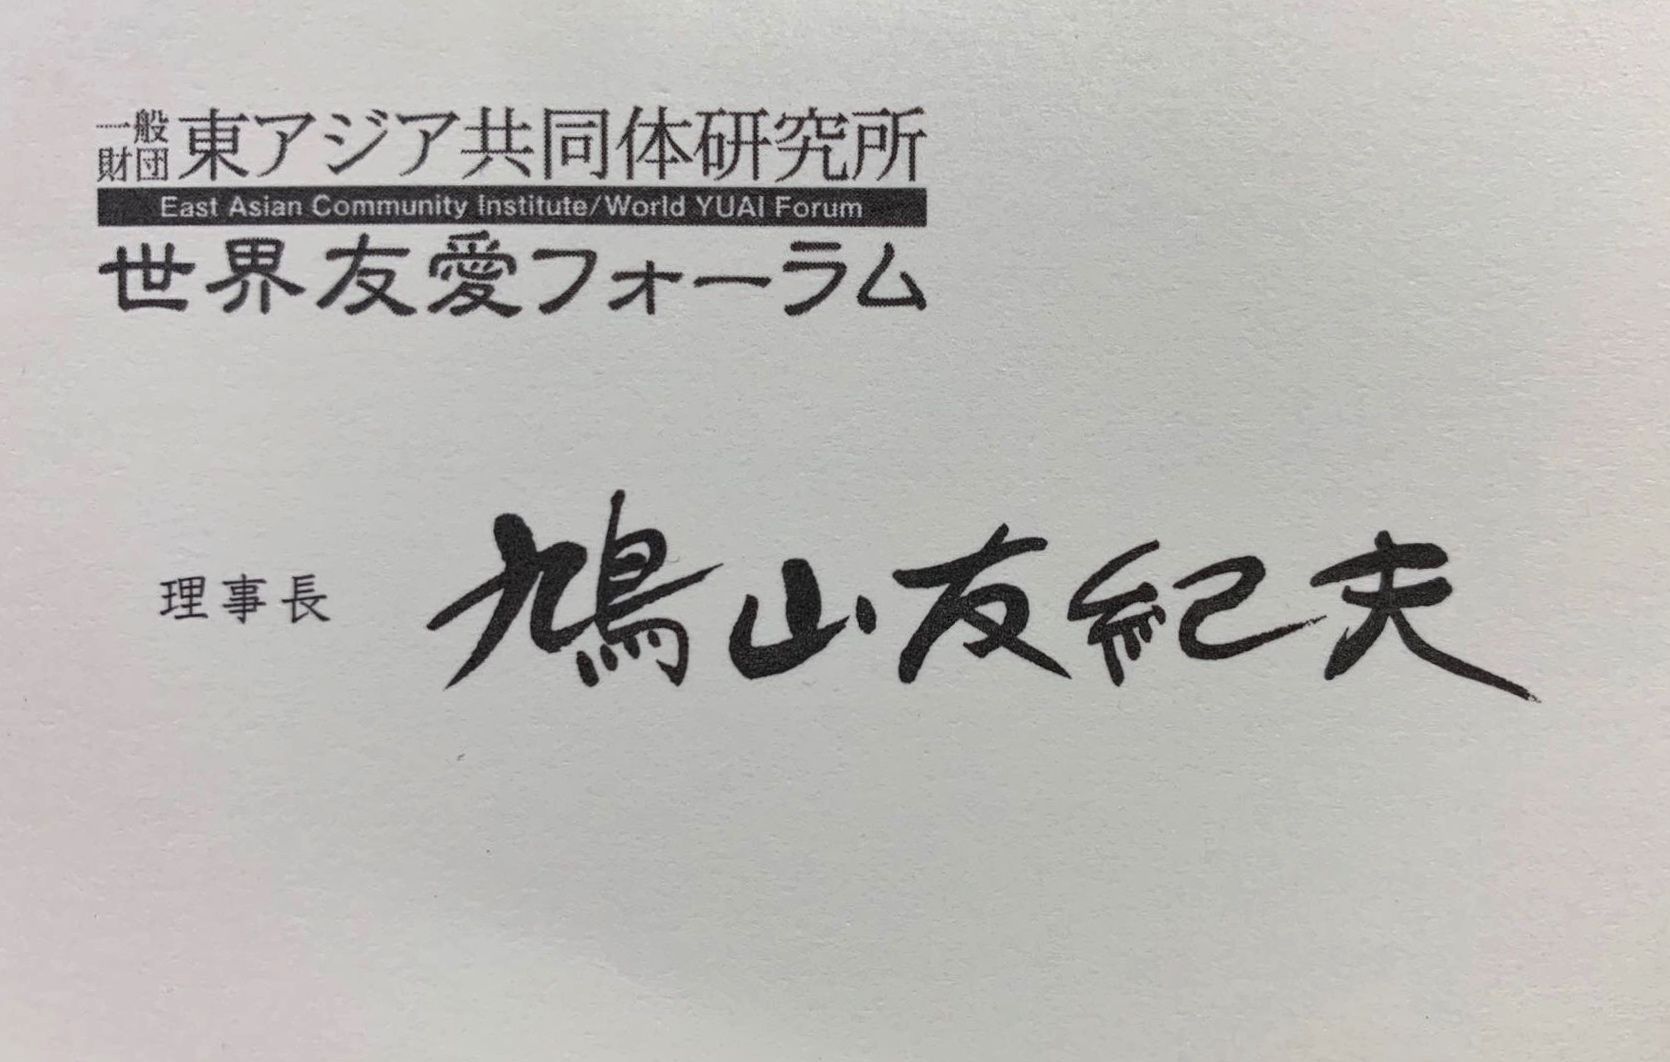 一般財団 東アジア共同体研究所
East Asian Community Institute/World YUAI Forum
世界友愛フォーラム
理事長 鳩山友紀夫